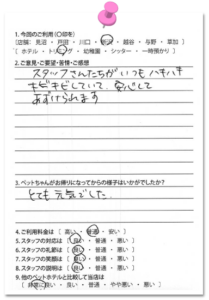 1.今回のご利用(○印を)
[店舗: 見沼 ・ 戸田 ・ 川口 ・ 新沢 ・ 越谷 ・ 与野 ・ 草加 ]
[ ホテル ・ トリミング ・ 幼稚園 ・ シッター ・ 一時預かり ]
2.ご意見・ご要望・苦情・ご感想
スタッフさんたちがいつもハキハキ
キビキビしていて、安心して
あずけられます
3.ペットちゃんがお帰りになってからの様子はいかがでしたか?
とても元気でした
4.ご利用料金は [ 高い ・ 普通 ・ 安い ]
5.スタッフの対応は [ 良い ・ 普通 ・ 悪い ]
6.スタッフの礼節は [ 良い ・ 普通 ・ 悪い ]
7.スタッフの笑顔は [ 良い ・ 普通 ・ 悪い ]
8.スタッフの説明は [ 良い ・ 普通 ・ 悪い ]
9.他のペットホテルと比較して当店は
[ 非常に良い ・ 良い ・ 普通 ・ やや悪い ・ 悪い ]